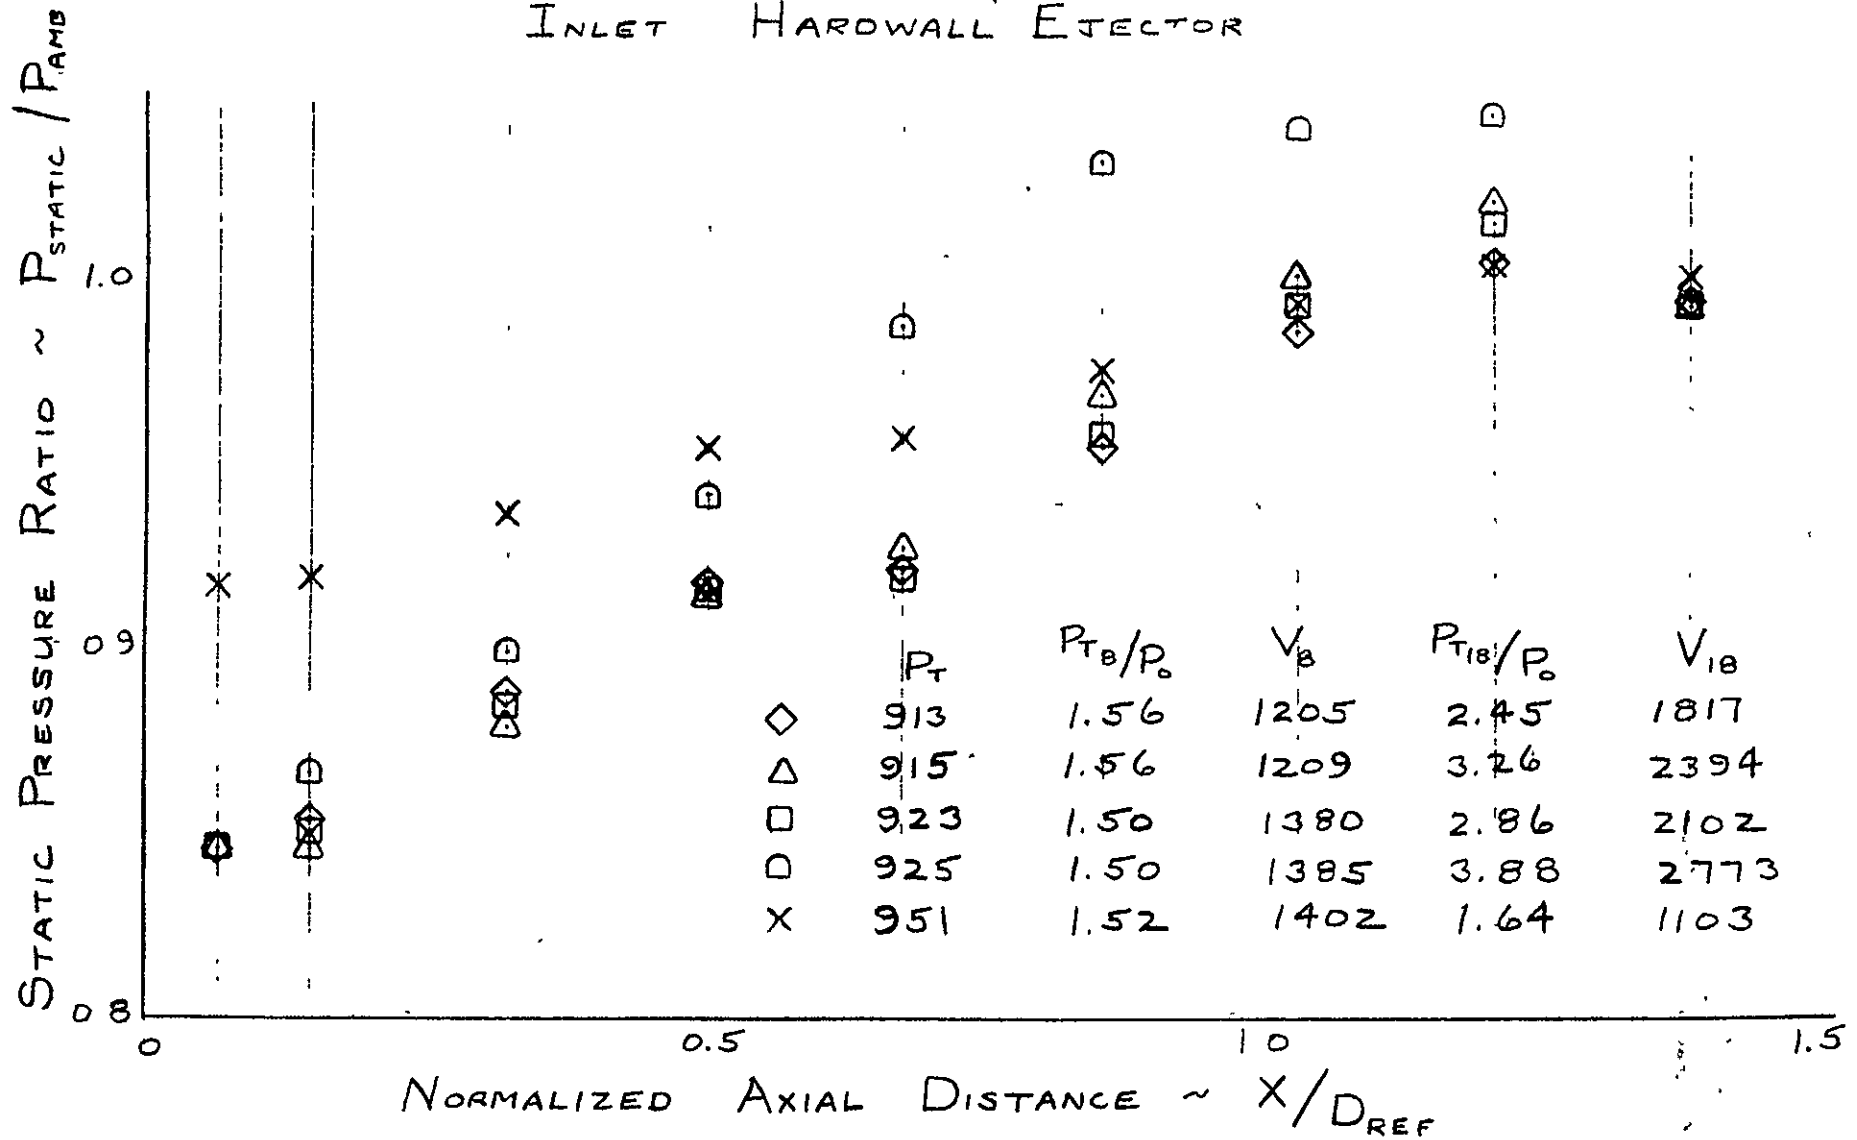 INLET HARDWALL EJECTOR
STATIC PRESSURE RATIO ~ PSTATIC / PAMB
1.0
0 9
0 8
PT PT8/P0 V8 PT18/P0 V18
◇ 913 1.56 1205 2.45 1817
△ 915 1.56 1209 3.26 2394
□ 923 1.50 1380 2.86 2102
925 1.50 1385 3.88 2773
× 951 1.52 1402 1.64 1103
0 0.5 1 0 1.5
NORMALIZED AXIAL DISTANCE ~ X/DREF